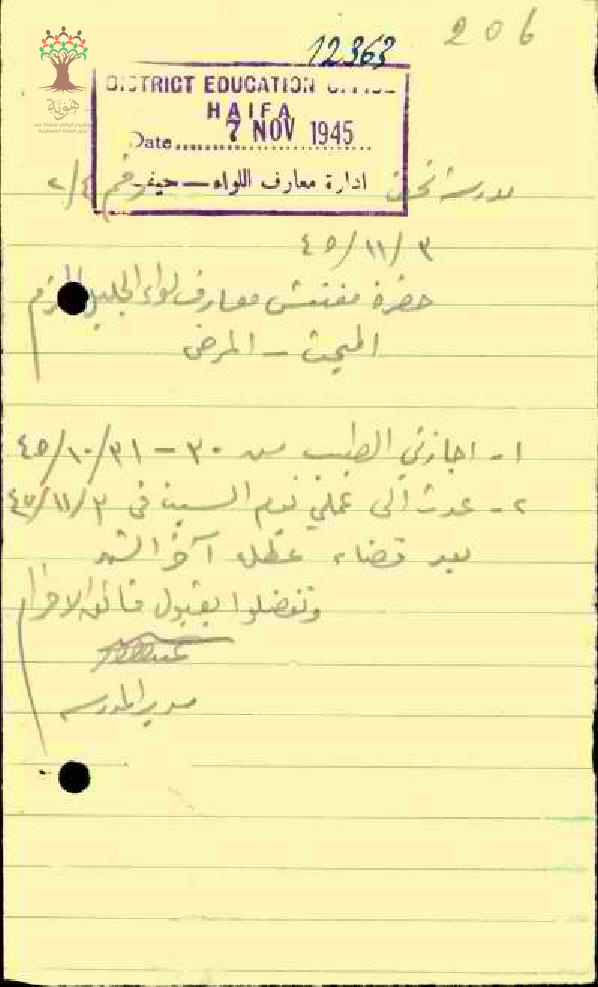 206
12363
DISTRICT EDUCATION OFFICE
HAIFA
Date 7 NOV 1945
ادارة معارف اللواء — حيفا
مدرسة نحف رقم ٢/٤
٤٥/١١/٣
حضرة مفتش معارف لواء الجليل المحترم
المبحث - المرض
١- اجازني الطبيب من ٣٠ - ٤٥/١٠/٣١
٢- عدت الى عملي يوم السبت في ٤٥/١١/٣
بعد قضاء عطلة آخر الشهر
وتفضلوا بقبول فائق الاحترام
مدير المدرسة
هوية